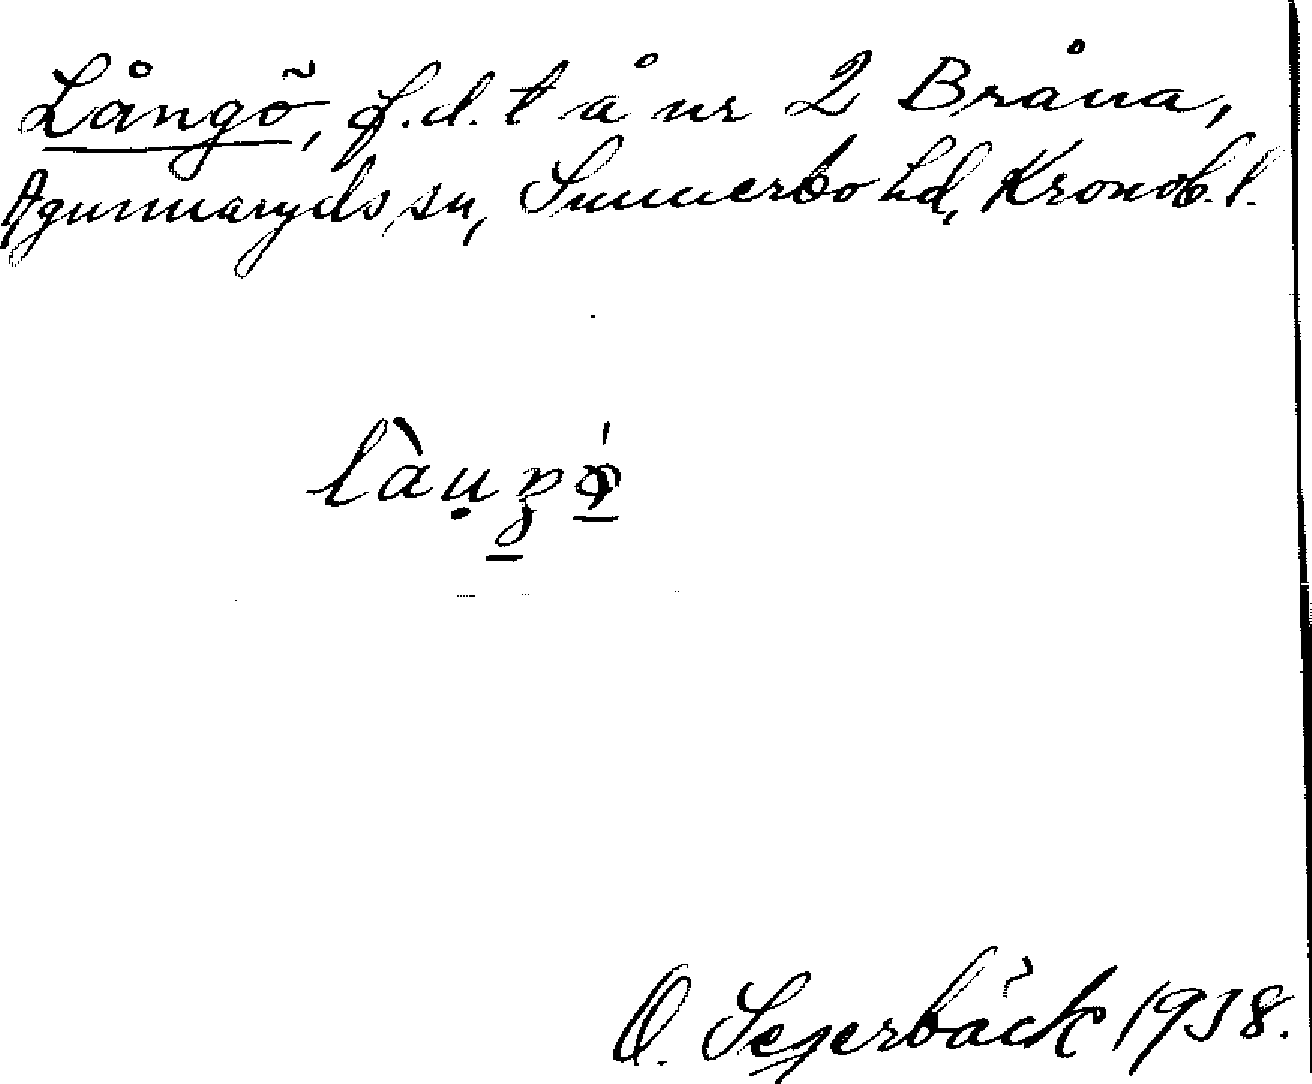 Långö, f.d. t å nr 2 Bråna,
Agunnaryds sn, Sunnerbo hd, Kronob.l.
O. Segerbäck 1938.